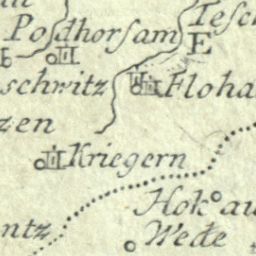 Podhorsam
Tesch
E
schwitz
Floha
zen
Kriegern
Hok
au
ntz
Wede